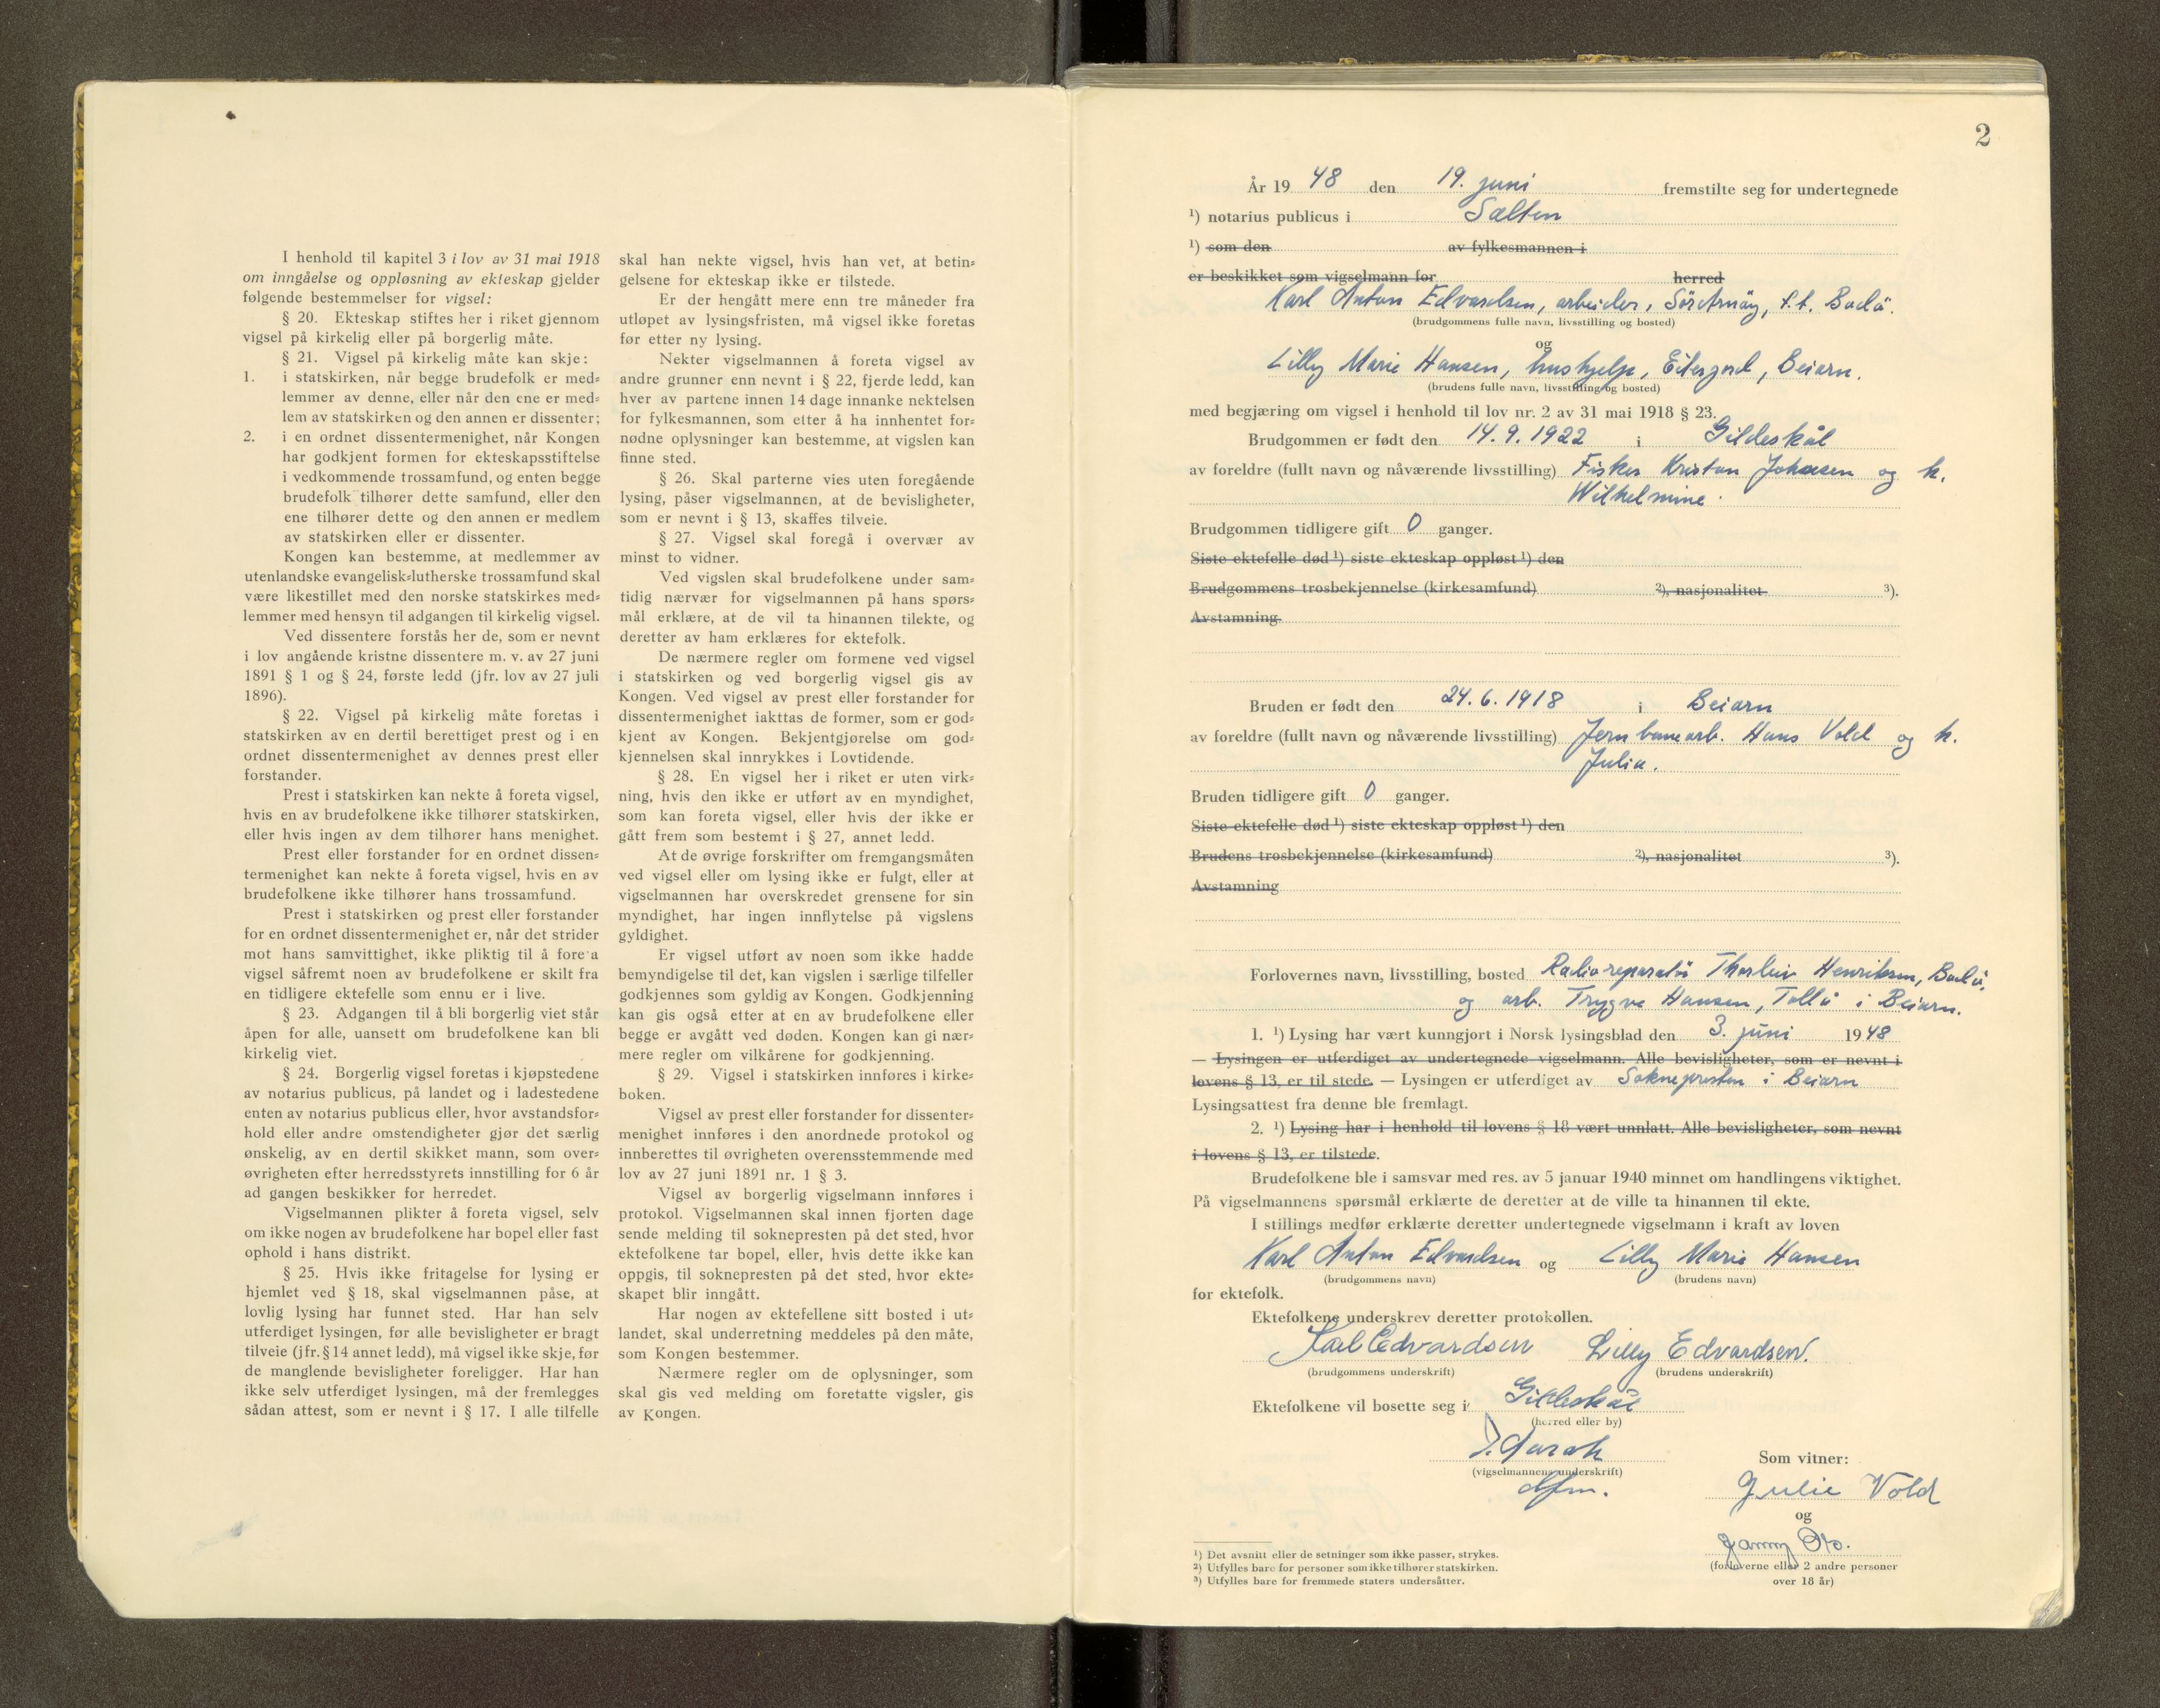 I henhold til kapitel 3 i lov av 31 mai 1918
om inngåelse og oppløsning av ekteskap gjelder
følgende bestemmelser for vigsel:
§ 20. Ekteskap stiftes her i riket gjennom
vigsel på kirkelig eller på borgerlig måte.
§ 21. Vigsel på kirkelig måte kan skje:
1. i statskirken, når begge brudefolk er med-
lemmer av denne, eller når den ene er med-
lem av statskirken og den annen er dissenter;
2. i en ordnet dissentermenighet, når Kongen
har godkjent formen for ekteskapsstiftelse
i vedkommende trossamfund, og enten begge
brudefolk tilhører dette samfund, eller den
ene tilhører dette og den annen er medlem
av statskirken eller er dissenter.
Kongen kan bestemme, at medlemmer av
utenlandske evangelisk-lutherske trossamfund skal
være likestillet med den norske statskirkes med-
lemmer med hensyn til adgangen til kirkelig vigsel.
Ved dissentere forstås her de, som er nevnt
i lov angående kristne dissentere m. v. av 27 juni
1891 § 1 og § 24, første ledd (jfr. lov av 27 juli
1896).
§ 22. Vigsel på kirkelig måte foretas i
statskirken av en dertil berettiget prest og i en
ordnet dissentermenighet av dennes prest eller
forstander.
Prest i statskirken kan nekte å foreta vigsel,
hvis en av brudefolkene ikke tilhører statskirken,
eller hvis ingen av dem tilhører hans menighet.
Prest eller forstander for en ordnet dissen-
termenighet kan nekte å foreta vigsel, hvis en av
brudefolkene ikke tilhører hans trossamfund.
Prest i statskirken og prest eller forstander
for en ordnet dissentermenighet er, når det strider
mot hans samvittighet, ikke pliktig til å fore a
vigsel såfremt noen av brudefolkene er skilt fra
en tidligere ektefelle som ennu er i live.
§ 23. Adgangen til å bli borgerlig viet står
åpen for alle, uansett om brudefolkene kan bli
kirkelig viet.
§ 24. Borgerlig vigsel foretas i kjøpstedene
av notarius publicus, på landet og i ladestedene
enten av notarius publicus eller, hvor avstandsfor-
hold eller andre omstendigheter gjør det særlig
ønskelig, av en dertil skikket mann, som over-
øvrigheten efter herredsstyrets innstilling for 6 år
ad gangen beskikker for herredet.
Vigselmannen plikter å foreta vigsel, selv
om ikke nogen av brudefolkene har bopel eller fast
ophold i hans distrikt.
§ 25. Hvis ikke fritagelse for lysing er
hjemlet ved § 18, skal vigselmannen påse, at
lovlig lysing har funnet sted. Har han selv
utferdiget lysingen, før alle bevisligheter er bragt
tilveie (jfr. § 14 annet ledd), må vigsel ikke skje, før
de manglende bevisligheter foreligger. Har han
ikke selv utferdiget lysingen, må der fremlegges
sådan attest, som er nevnt i § 17. I alle tilfelle
skal han nekte vigsel, hvis han vet, at betin-
gelsene for ekteskap ikke er tilstede.
Er der hengått mere enn tre måneder fra
utløpet av lysingsfristen, må vigsel ikke foretas
før etter ny lysing.
Nekter vigselmannen å foreta vigsel av
andre grunner enn nevnt i § 22, fjerde ledd, kan
hver av partene innen 14 dage innanke nektelsen
for fylkesmannen, som etter å ha innhentet for-
nødne oplysninger kan bestemme, at vigslen kan
finne sted.
§ 26. Skal parterne vies uten foregående
lysing, påser vigselmannen, at de bevisligheter,
som er nevnt i § 13, skaffes tilveie.
§ 27. Vigsel skal foregå i overvær av
minst to vidner.
Ved vigslen skal brudefolkene under sam-
tidig nærvær for vigselmannen på hans spørs-
mål erklære, at de vil ta hinannen tilekte, og
deretter av ham erklæres for ektefolk.
De nærmere regler om formene ved vigsel
i statskirken og ved borgerlig vigsel gis av
Kongen. Ved vigsel av prest eller forstander for
dissentermenighet iakttas de former, som er god-
kjent av Kongen. Bekjentgjørelse om god-
kjennelsen skal innrykkes i Lovtidende.
§ 28. En vigsel her i riket er uten virk-
ning, hvis den ikke er utført av en myndighet,
som kan foreta vigsel, eller hvis der ikke er
gått frem som bestemt i § 27, annet ledd.
At de øvrige forskrifter om fremgangsmåten
ved vigsel eller om lysing ikke er fulgt, eller at
vigselmannen har overskredet grensene for sin
myndighet, har ingen innflytelse på vigslens
gyldighet.
Er vigsel utført av noen som ikke hadde
bemyndigelse til det, kan vigslen i særlige tilfeller
godkjennes som gyldig av Kongen. Godkjenning
kan gis også etter at en av brudefolkene eller
begge er avgått ved døden. Kongen kan gi nær-
mere regler om vilkårene for godkjenning.
§ 29. Vigsel i statskirken innføres i kirke-
boken.
Vigsel av prest eller forstander for dissenter-
menighet innføres i den anordnede protokol og
innberettes til øvrigheten overensstemmende med
lov av 27 juni 1891 nr. 1 § 3.
Vigsel av borgerlig vigselmann innføres i
protokol. Vigselmannen skal innen fjorten dage
sende melding til soknepresten på det sted, hvor
ektefolkene tar bopel, eller, hvis dette ikke kan
oppgis, til soknepresten på det sted, hvor ekte-
skapet blir inngått.
Har nogen av ektefellene sitt bosted i ut-
landet, skal underretning meddeles på den måte,
som Kongen bestemmer.
Nærmere regler om de oplysninger, som
skal gis ved melding om foretatte vigsler, gis
av Kongen.
2
År 19 48 den 19. juni fremstilte seg for undertegnede
¹) notarius publicus i Salten
¹) som den av fylkesmannen i
er beskikket som vigselmann for herred
Karl Anton Edvardsen, arbeider, Sörarnöy, f.t. Bodö.
(brudgommens fulle navn, livsstilling og bosted)
og
Lilly Marie Hansen, hushjelp, Eiterjord, Beiarn.
(brudens fulle navn, livsstilling og bosted)
med begjæring om vigsel i henhold til lov nr. 2 av 31 mai 1918 § 23.
Brudgommen er født den 14.9.1922 i Gildeskål
av foreldre (fullt navn og nåværende livsstilling) Fisker Kristan Johansen og h.
Wilhelmine.
Brudgommen tidligere gift 0 ganger.
Siste ektefelle død ¹) siste ekteskap oppløst ¹) den
Brudgommens trosbekjennelse (kirkesamfund) ²), nasjonalitet ³).
Avstamning
Bruden er født den 24.6.1918 i Beiarn
av foreldre (fullt navn og nåværende livsstilling) Jernbanearb. Hans Vold og h.
Julia.
Bruden tidligere gift 0 ganger.
Siste ektefelle død ¹) siste ekteskap oppløst ¹) den
Brudens trosbekjennelse (kirkesamfund) ²), nasjonalitet ³).
Avstamning
Forlovernes navn, livsstilling, bosted Radioreparatör Thorleiv Henriksen, Bodö,
og arb. Trygve Hansen, Tollå i Beiarn.
1. ¹) Lysing har vært kunngjort i Norsk lysingsblad den 3. juni 1948
— Lysingen er utferdiget av undertegnede vigselmann. Alle bevisligheter, som er nevnt i
lovens § 13, er til stede. — Lysingen er utferdiget av Soknepresten i Beiarn
Lysingsattest fra denne ble fremlagt.
2. ¹) Lysing har i henhold til lovens § 18 vært unnlatt. Alle bevisligheter, som nevnt
i lovens § 13, er tilstede.
Brudefolkene ble i samsvar med res. av 5 januar 1940 minnet om handlingens viktighet.
På vigselmannens spørsmål erklærte de deretter at de ville ta hinannen til ekte.
I stillings medfør erklærte deretter undertegnede vigselmann i kraft av loven
Karl Anton Edvardsen og Lilly Marie Hansen
(brudgommens navn) (brudens navn)
for ektefolk.
Ektefolkene underskrev deretter protokollen.
Karl Edvardsen Lilly Edvardsen.
(brudgommens underskrift) (brudens underskrift)
Ektefolkene vil bosette seg i Gildeskål
(herred eller by)
(vigselmannens underskrift)
Som vitner:
Julie Vold
og
(forloverne eller 2 andre personer
over 18 år)
¹) Det avsnitt eller de setninger som ikke passer, strykes.
²) Utfylles bare for personer som ikke tilhører statskirken.
³) Utfylles bare for fremmede staters undersåtter.